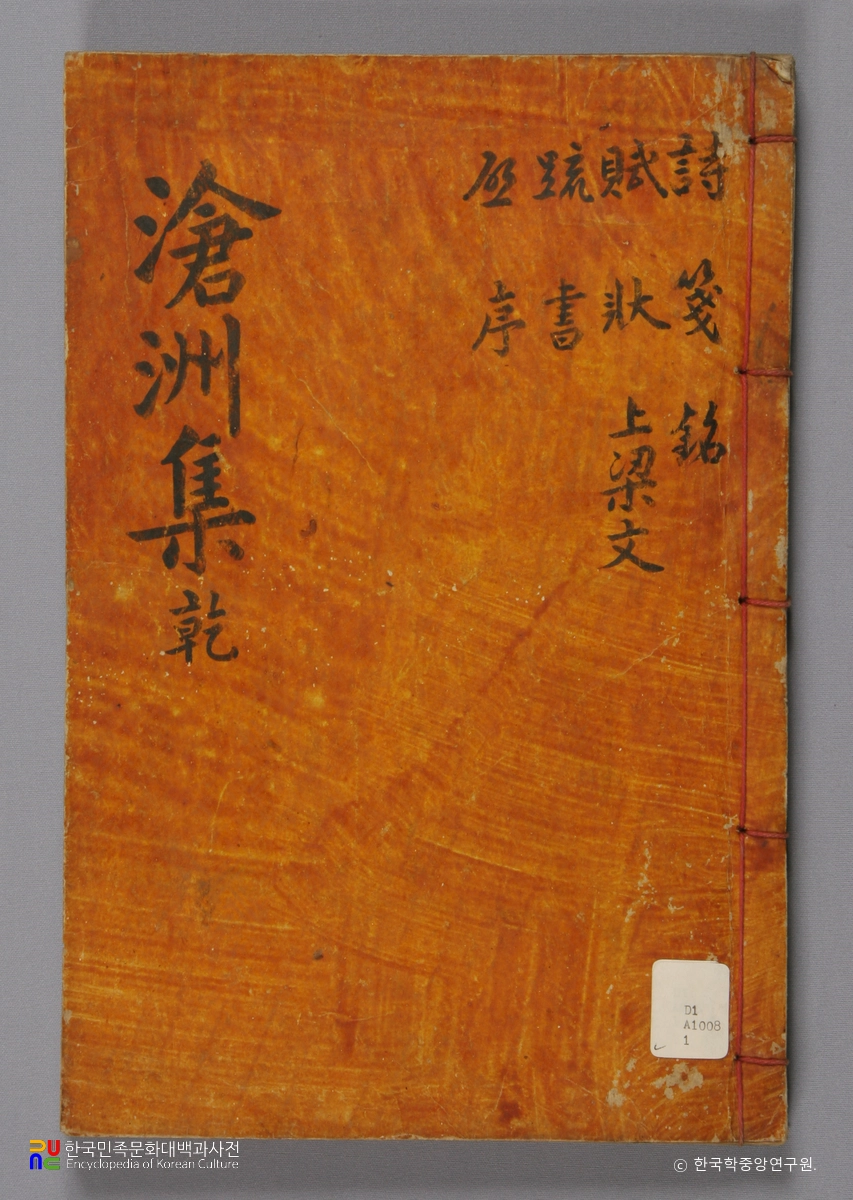 詩 箋 銘
賦 狀 上梁文
疏 書
啓 序
滄洲集 乾
D1
A1008
1
한국민족문화대백과사전
Encyclopedia of Korean Culture
© 한국학중앙연구원.